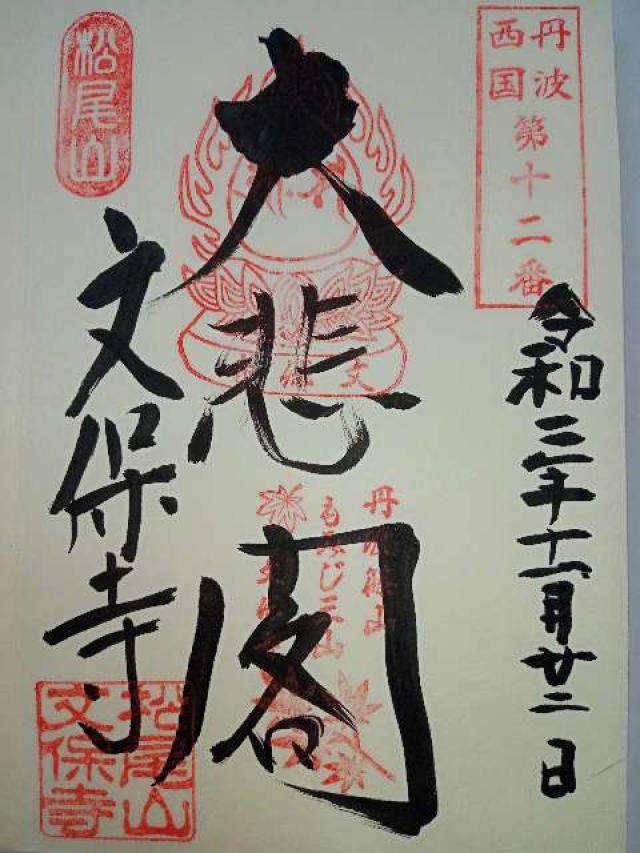 丹波
西国
第十二番
令和三年十一月廿二日
大悲閣
丹波篠山
もみじ三山
文保寺
松尾山
松尾山
文保寺